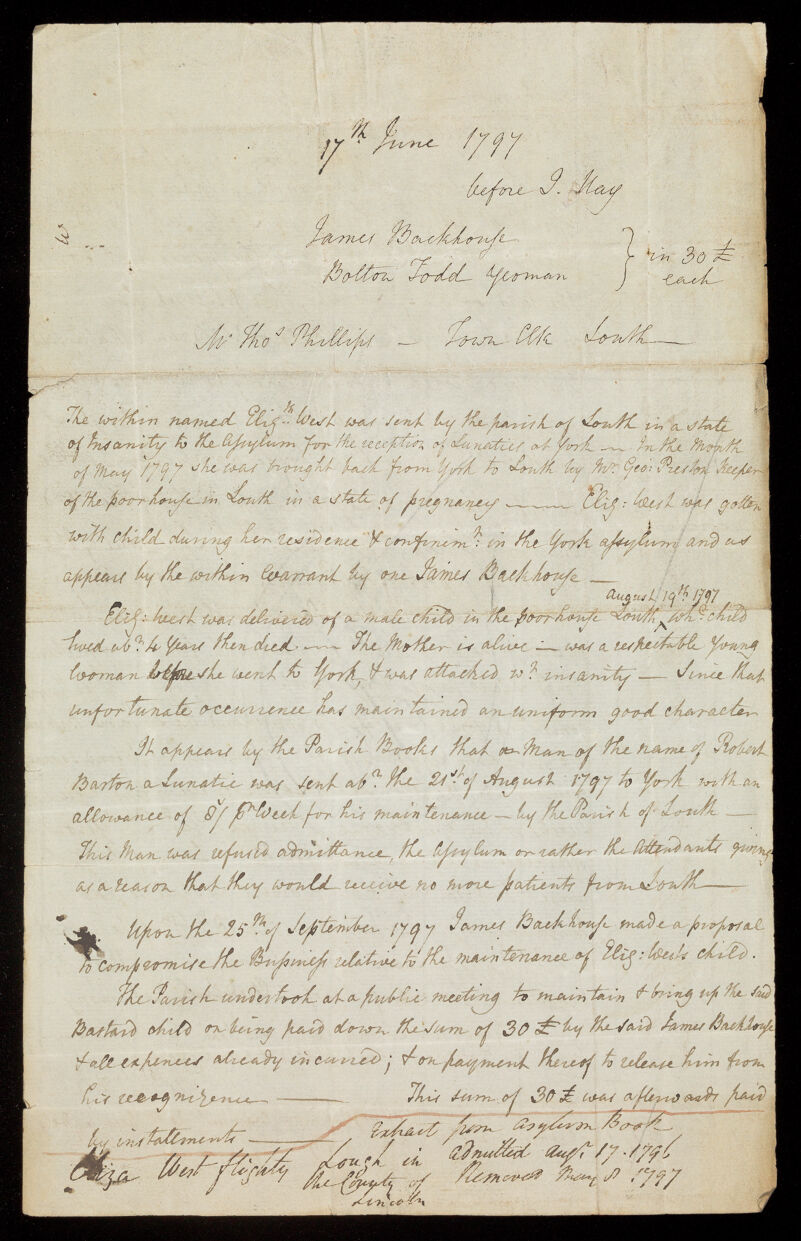 17th June 1797
before J. Hay
James Backhouse
Bolton Todd Yeoman } in 30 £ each
Mr Thos Phillips — Town Clk Louth —
The within named Elizth West was sent by the parish of Louth in a state
of Insanity to the Assylum for the reception of Lunatics at York — In the Month
of May 1797 she was brought back from York to Louth by Mr. Geo: Preston Keeper
of the poorhouse in Louth in a state of pregnancy —— Eliz: West was gotten
with child during her residence & confinemt: in the York assylum and as
appears by the within Warrant by one James Backhouse —
August 19th 1797
Eliz: West was delivered of a male child in the poorhouse Louth ^ whd. child
lived abt. 4 Years then died —— The Mother is alive — was a respectable Young
Woman before she went to York, & was attacked wh. insanity — Since that
unfortunate occurrence has maintained an uniform good character
It appears by the Parish Books that a Man of the name of Robert
Barton a Lunatic was sent abt. the 21st of August 1797 to York with an
allowance of 8/ pr Week for his maintenance — by the Parish of Louth —
This Man was refused admittance, the Assylum or rather the Attendants giving
as a reason that they would receive no more patients from Louth —
Upon the 25th of September 1797 James Backhouse made a proposal
to compromise the Bussiness relative to the maintenance of Eliz: West's child.
The Parish undertook at a public meeting to maintain & bring up the said
Bastard child on being paid down the sum of 30 £ by the said James Backhouse
& all expences already incurred; & on payment thereof to release him from
his recognizence —— This sum of 30 £ was afterwards paid
by installments ——
Extract from Asylum Book
Eliza West flighty Lough in the County of Lincoln
Admitted Augst 17. 1796
Removed May 8 1797